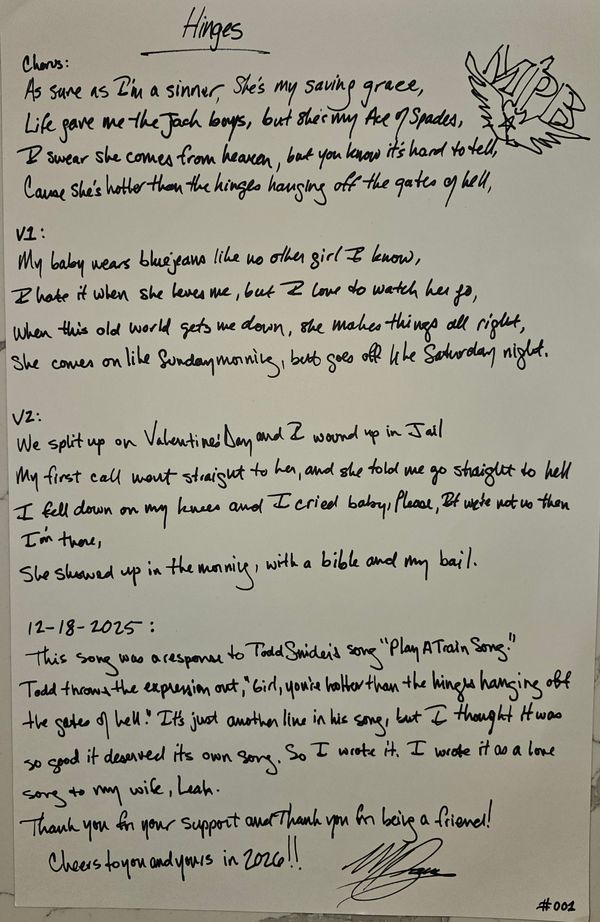 Hinges
Chorus:
As sure as I'm a sinner, She's my saving grace,
Life gave me the Jack boys, but she's my Ace of Spades,
I swear she comes from heaven, but you know it's hard to tell,
Cause she's hotter than the hinges hanging off the gates of hell,
V1:
My baby wears bluejeans like no other girl I know,
I hate it when she leaves me, but I love to watch her go,
When this old world gets me down, she makes things all right,
She comes on like Sunday morning, but goes off like Saturday night.
V2:
We split up on Valentine's Day and I wound up in Jail
My first call went straight to her, and she told me go straight to hell
I fell down on my knees and I cried baby, Please, If we're not us then
I'm there,
She showed up in the morning, with a bible and my bail.
12-18-2025:
This song was a response to Todd Snider's song "Play A Train Song."
Todd throws the expression out, "Girl, you're hotter than the hinges hanging off
the gates of hell." It's just another line in his song, but I thought it was
so good it deserved its own song. So I wrote it. I wrote it as a love
song to my wife, Leah.
Thank you for your support and Thank you for being a friend!
Cheers to you and yours in 2026!!
#001